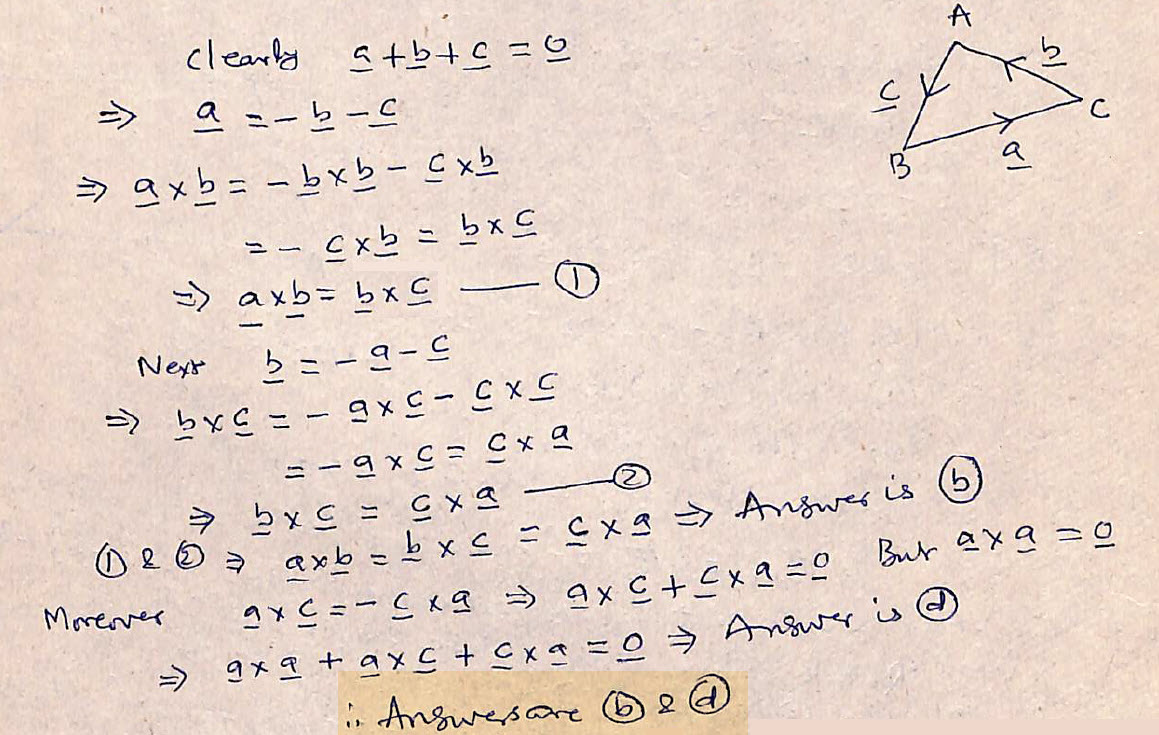 clearly a + b + c = 0
⇒ a = - b - c
⇒ a x b = - b x b - c x b
= - c x b = b x c
⇒ a x b = b x c —— ①
Next b = - a - c
⇒ b x c = - a x c - c x c
= - a x c = c x a
⇒ b x c = c x a —— ②
① & ② ⇒ a x b = b x c = c x a ⇒ Answer is ⓑ
Moreover a x c = - c x a ⇒ a x c + c x a = 0 But a x a = 0
⇒ a x a + a x c + c x a = 0 ⇒ Answer is ⓓ
∴ Answers are ⓑ & ⓓ
A
b
c
C
B
a